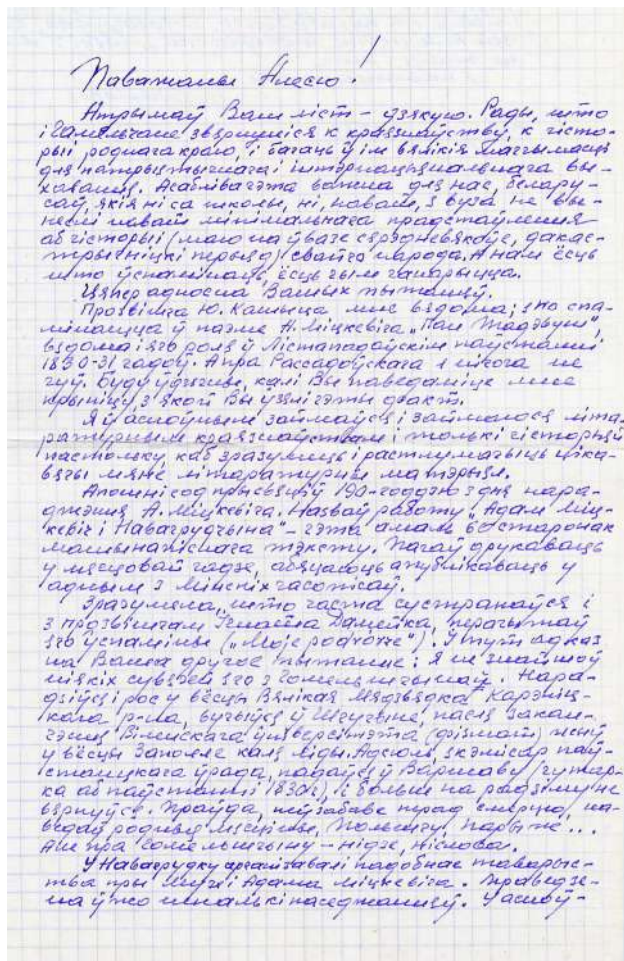 Паважаны Алесю!
Атрымаў Ваш ліст – дзякую. Рады, што
і Гамяльчане звярнуліся к краязнаўству, к гісто-
рыі роднага краю, і бачаць ў ім вялікія магчымасці
для патрыятычнага і інтэрнацыянальнага вы-
хавання. Асабліва гэта важна для нас, белару-
саў, якія ні са школы, ні, нават, з вуза не вы-
неслі нават мінімальнага прадстаўлення
аб гісторыі (маю на ўвазе сярэдневякоўе, дакас-
трычніцкі перыяд) свайго народа. А нам ёсць
што ўспамінаць, ёсць чым ганарыцца.
Цяпер адносна Вашых пытанняў.
Прозвішча Ю. Кашыца мне вядома; яно спа-
мінаецца ў паэме А. Міцкевіча „Пан Тадэвуш",
вядома і яго роля ў Лістападаўскім паўстанні
1830-31 гадоў. А пра Рассадоўскага я нічога не
чуў. Буду ўдзячны, калі Вы паведаміце мне
крыніцу, з якой Вы узялі гэты факт.
Я ў асноўным займаўся і займаюся літа-
ратурным краязнаўствам і толькі гісторыяй
настолькі, каб зразумець і растлумачыць ціка-
вячы мяне літаратурны матэрыял.
Апошні год прысвяціў 190-годдзю з дня нара-
джэння А. Міцкевіча. Назваў работу „Адам Міц-
кевіч і Навагрудчына" – гэта амаль 60 старонак
машынапіснага тэксту. Пачаў друкаваць
у мясцовай газэце, абяцаюць апублікаваць у
адным з Мінскіх часопісаў.
Зразумела, што часта сустракаўся і
з прозвішчам Ігната Дамейка, перачытаў
яго ўспаміны („Moje podróże"). І тут адказ
на Ваша другое пытанне: я не знайшоў
ніякіх сувязей яго з Гомельшчынай. Нара-
дзіўся і рос у вёсцы Вялікая Мядзвядка Карэліц-
кага р-на, вучыўся ў Шчучыне, пасля закан-
чэння Віленскага ўніверсітэта (фізмат) жыў
у вёсцы Заполле каля Ліды. Адсюль, як эмісар паў-
станцкага ўрада, падаўся ў Варшаву (гутар-
ка аб паўстанні 1830 г.), і больш на радзіму не
вярнуўся. Праўда, незабаве перад смерцю, на-
ведаў родныя мясціны, Польшчу, Парыж...
Але пра Гомельшчыну – нідзе, ні слова.
У Навагрудку арганізавалі падобнае таварыс-
тва пры музеі Адама Міцкевіча. Праведзе-
на ўжо некалькі паседжанняў. У асноў-